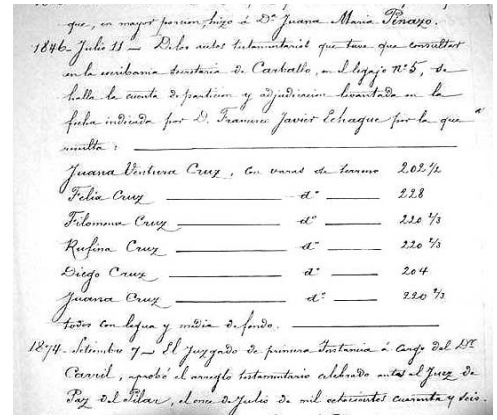 que, en mayor porcion, hizo á Dª Juana Maria Pinazo.
1846 Julio 11 — De los autos testamentarios que tuve que consultar
en la escribania secretaria de Carballo, en el legajo nº 5, se
halla la cuenta de particion y adjudicacion levantada en la
fecha indicada por D. Francisco Javier Echague por la que
resulta :
Juana Ventura Cruz, con varas de terreno 202 1/2
Felix Cruz — dº — 228
Filomena Cruz — dº — 220 1/3
Rufina Cruz — dº — 220 1/3
Diego Cruz — dº — 204
Juana Cruz — dº — 220 1/3
todos con legua y media de fondo.
1874 - Setiembre 7 — El Juzgado de primera Instancia á cargo del Dr
Carril, aprobó el arreglo testamentario celebrado ante el Juez de
Paz del Pilar, el once de Julio de mil ochocientos cuarenta y seis.